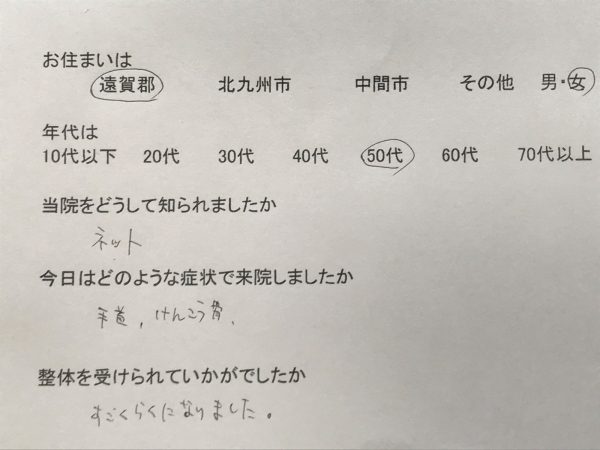 お住まいは
遠賀郡 北九州市 中間市 その他 男・女
年代は
10代以下 20代 30代 40代 50代 60代 70代以上
当院をどうして知られましたか
ネット
今日はどのような症状で来院しましたか
けんこう骨、
整体を受けられていかがでしたか
すごくらくになりました。